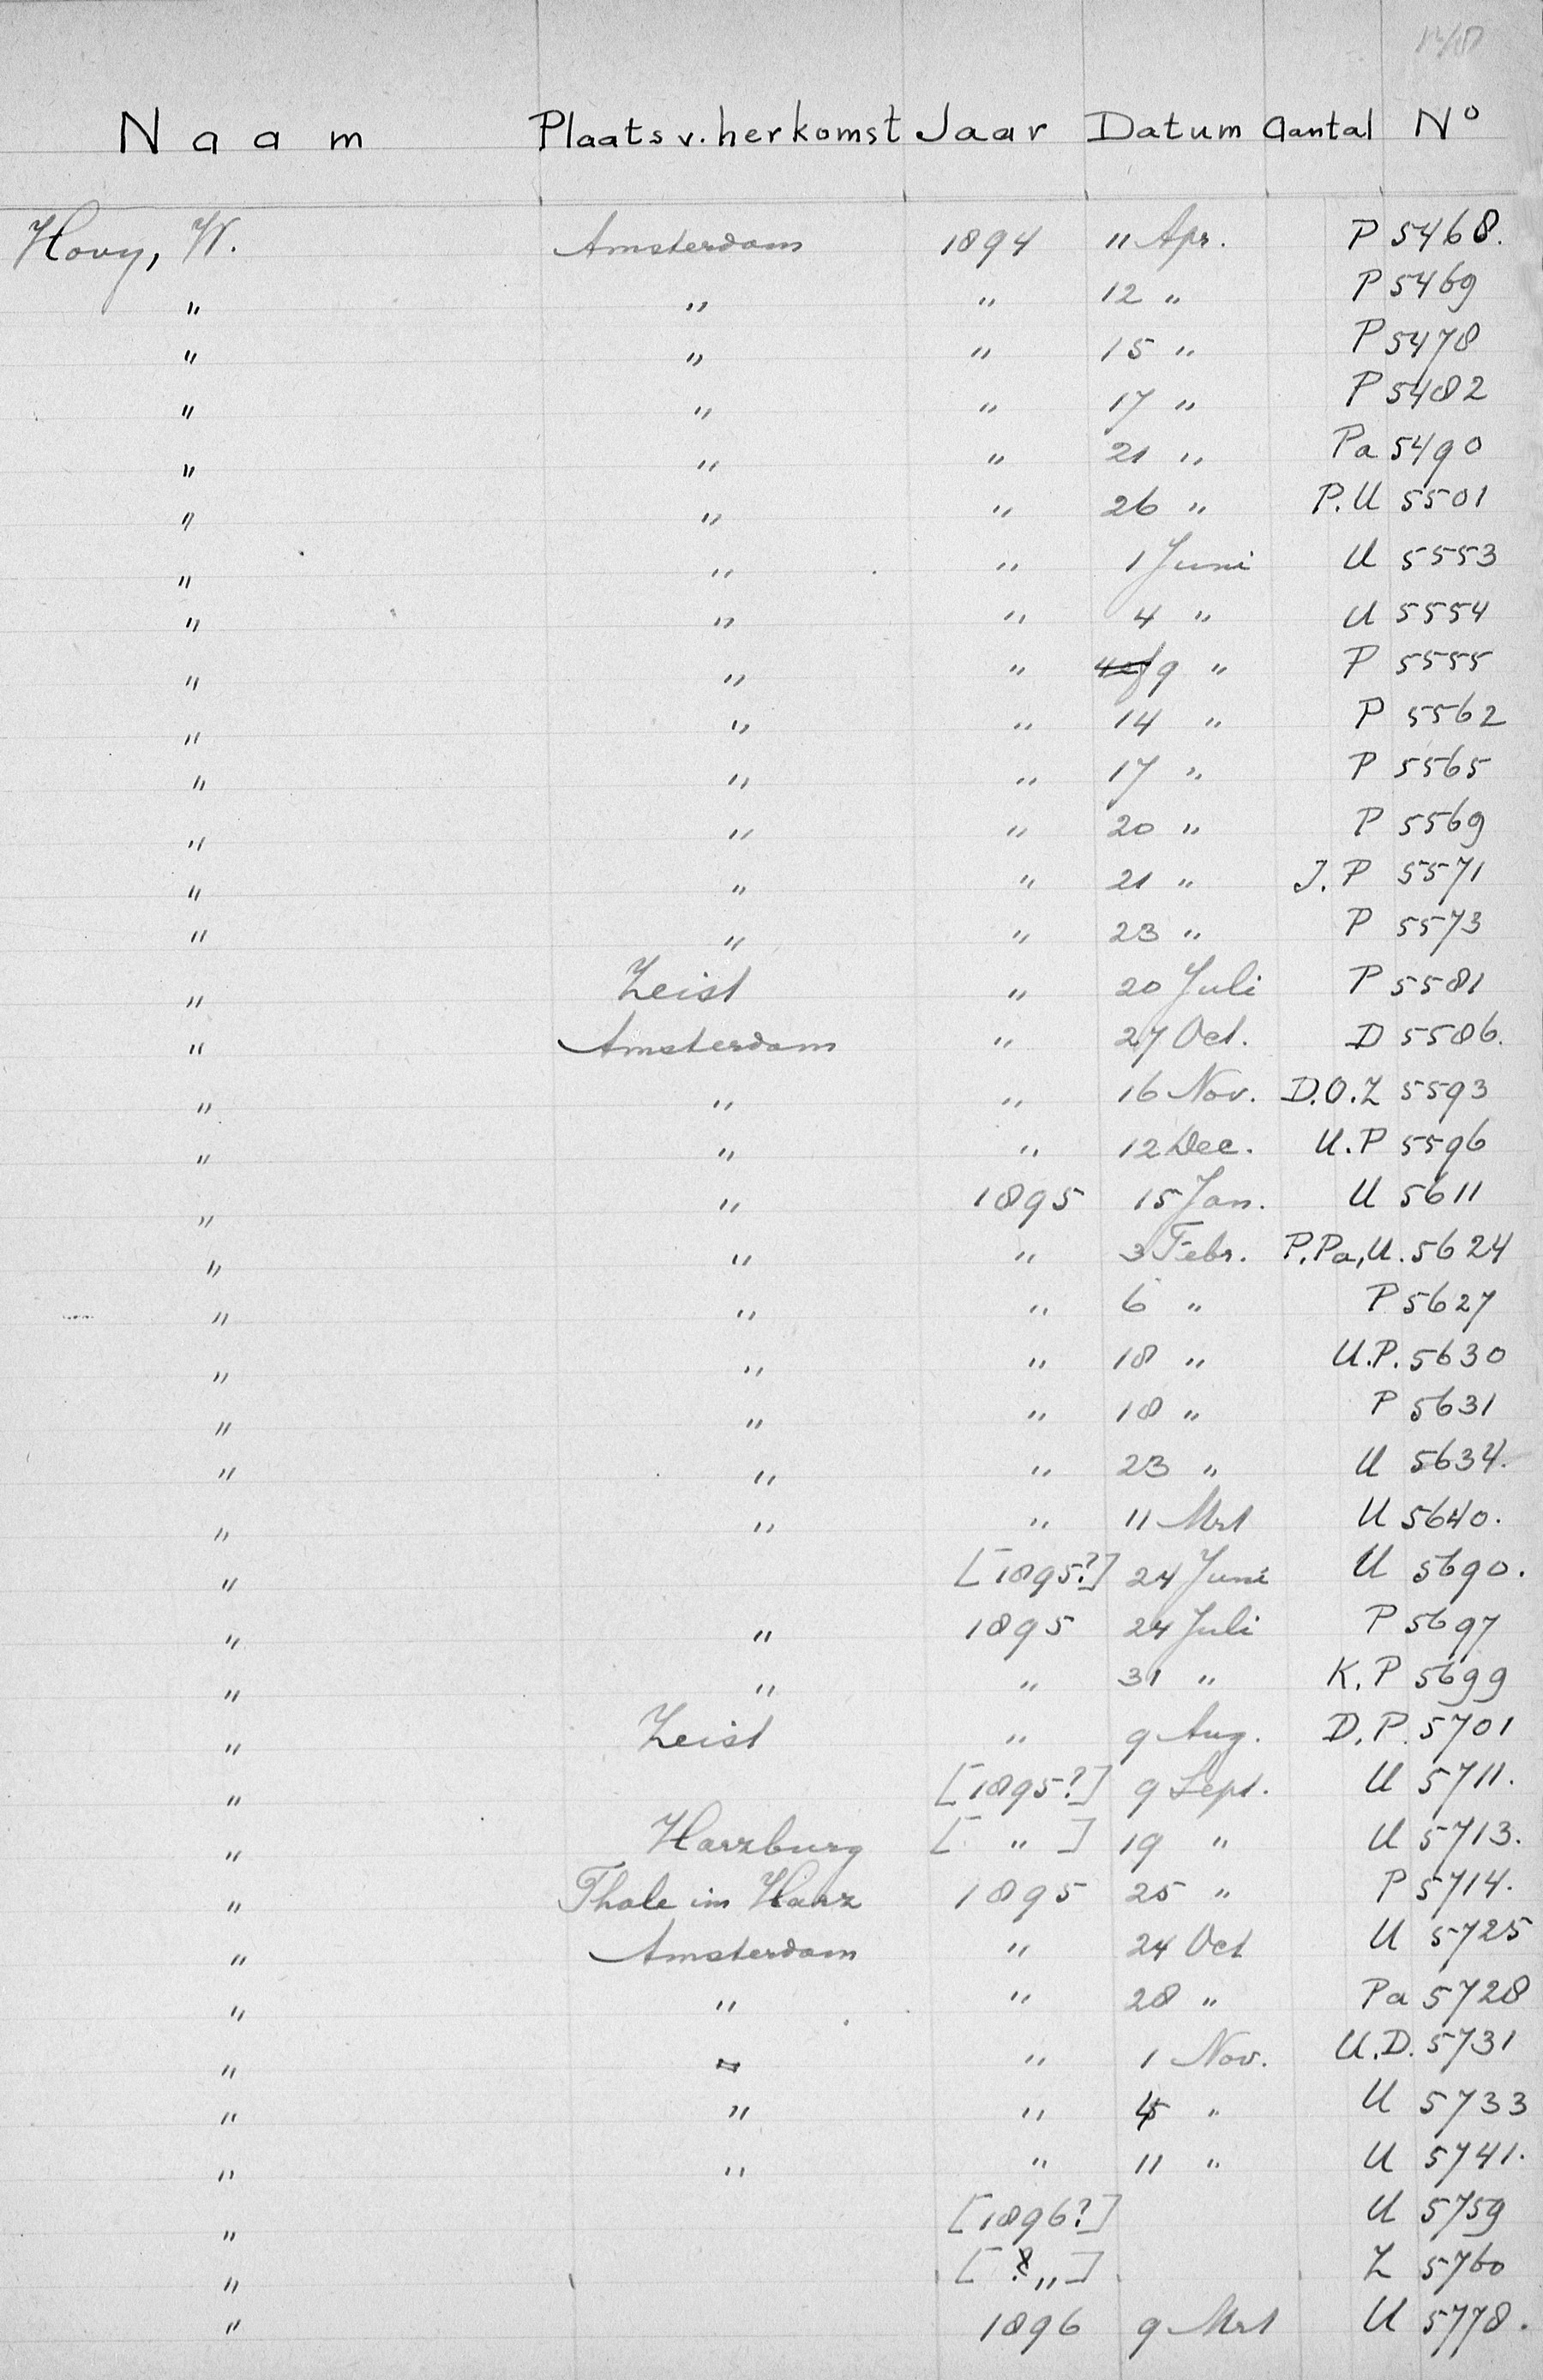 Naam Plaats v. herkomst Jaar Datum Aantal No
Hovy, W. Amsterdam 1894 11 Apr. P 5468.
" " " 12 " P 5469
" " " 15 " P 5478
" " " 17 " P 5482
" " " 21 " Pa 5490
" " " 26 " P.U 5501
" " " 1 Juni U 5553
" " " 4 " U 5554
" " " 9 " P 5555
" " " 14 " P 5562
" " " 17 " P 5565
" " " 20 " P 5569
" " " 21 " J.P 5571
" " " 23 " P 5573
" Zeist " 20 Juli P 5581
" Amsterdam " 27 Oct. D 5586.
" " " 16 Nov. D.O.Z 5593
" " " 12 Dec. U.P 5596
" " 1895 15 Jan. U 5611
" " " 3 Febr. P.Pa,U. 5624
" " " 6 " P 5627
" " " 18 " U.P. 5630
" " " 18 " P 5631
" " " 23 " U 5634.
" " " 11 Mrt U 5640.
" [1895?] 24 Juni U 5690.
" " 1895 24 Juli P 5697
" " " 31 " K.P 5699
" Zeist " 9 Aug. D.P. 5701
" [1895?] 9 Sept. U 5711.
" Harzburg [ " ] 19 " U 5713.
" Thale im Harz 1895 25 " P 5714.
" Amsterdam " 24 Oct U 5725
" " " 28 " Pa 5728
" " " 1 Nov. U.D. 5731
" " " " U 5733
" " " 11 " U 5741.
" [1896?] U 5759
" [ " ] Z 5760
" 1896 9 Mrt U 5778.